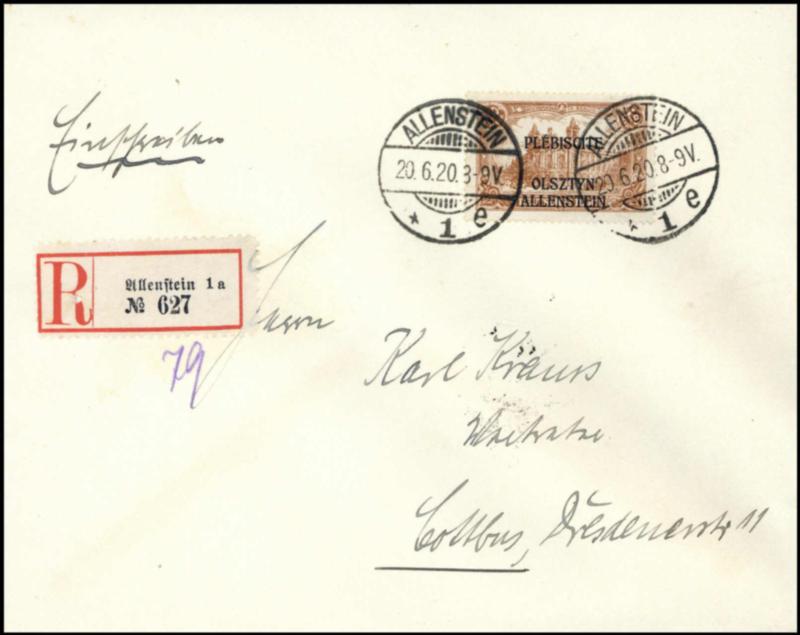 Einschreiben
ALLENSTEIN
20.6.20.8-9V.
* 1 e
PLÉBISCITE
OLSZTYN
ALLENSTEIN
ALLENSTEIN
20.6.20.8-9V.
* 1 e
R
Allenstein 1 a
№ 627
79
Herrn
Karl Krauss
Cottbus, Dresdenerstr 11